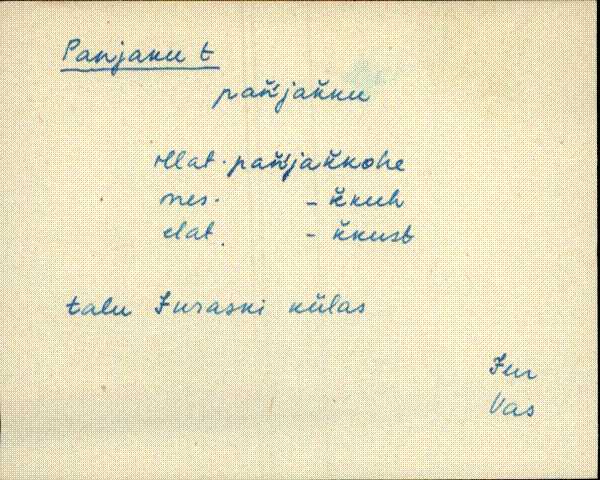 Panjaku t
pań̆jak̆ku
illat. pań̆jak̆kohe
ines. - k̆kuh
elat. - k̆kust
talu Juraski külas
Jur
Vas